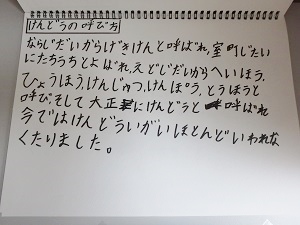 けんどうの呼びち
ならじだいからげきけんと呼ばれ,室町じたい
にたちうちとよばれ,えどじだいからへいほう,
ひょうほう,けんじゅつ,けんぽう,とうほうと
呼び,そして大正にけんどうと呼ばれ
今ではけんどういがいほとんどいわれな
くたりました。